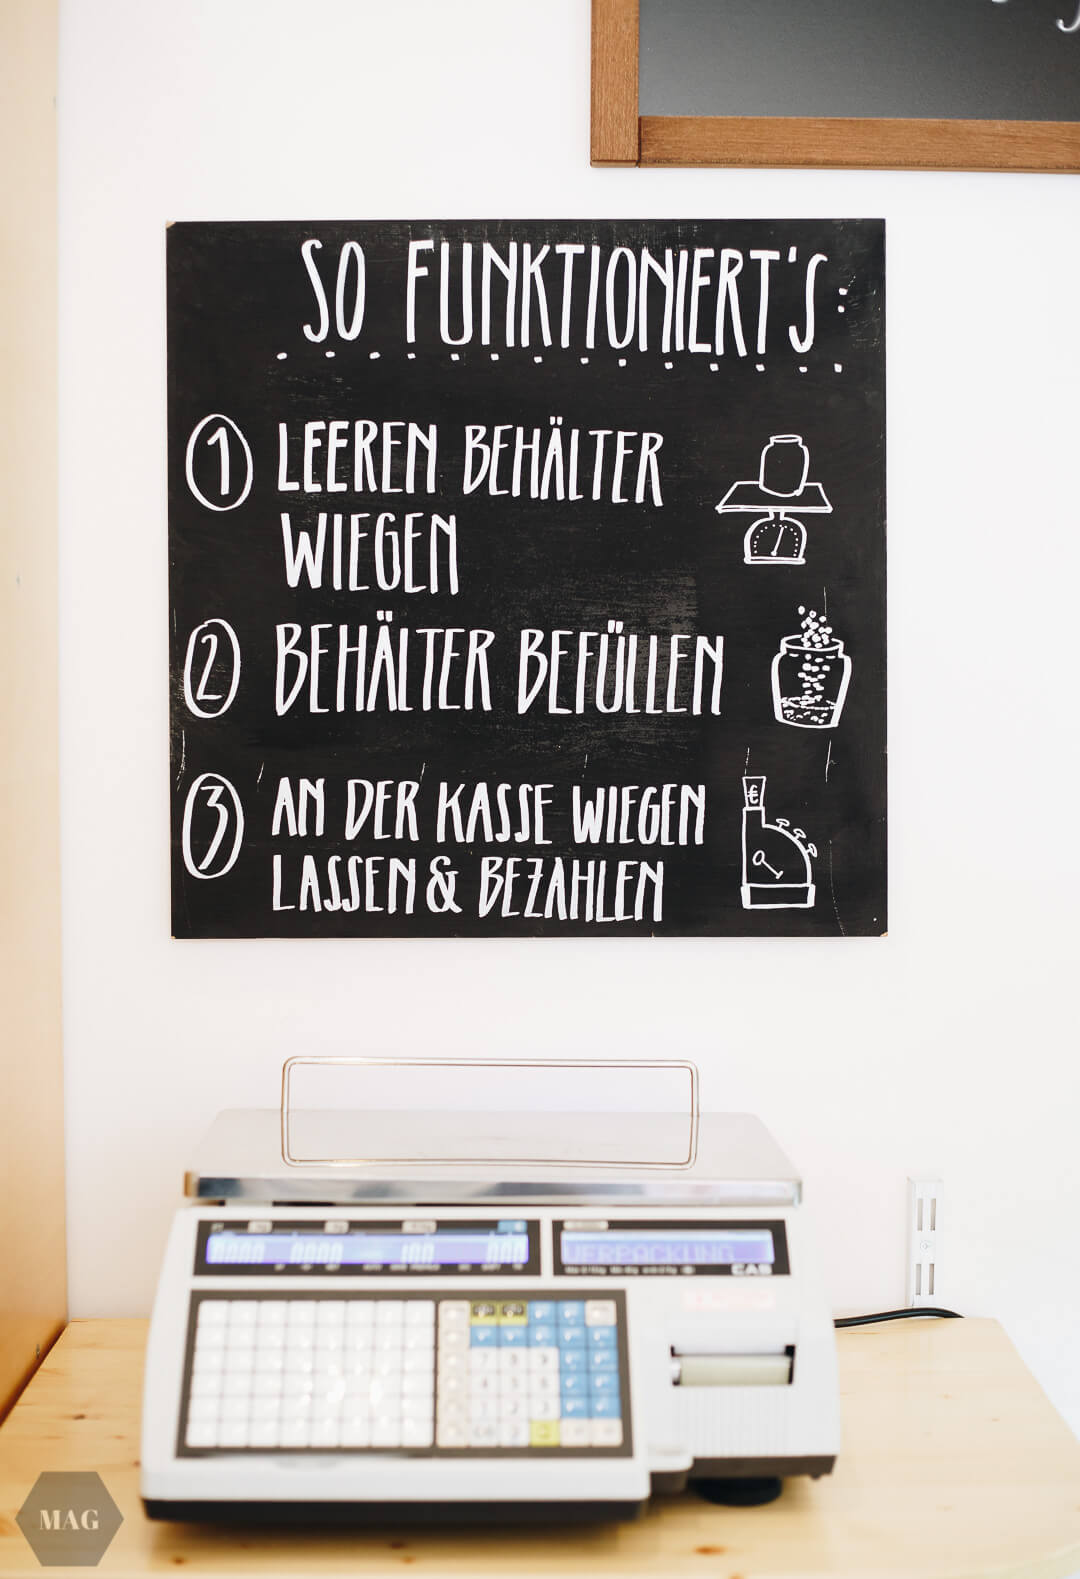 SO FUNKTIONIERT'S:
1 LEEREN BEHÄLTER
WIEGEN
2 BEHÄLTER BEFÜLLEN
3 AN DER KASSE WIEGEN
LASSEN & BEZAHLEN
€
VERPACKUNG
CAS
MAG